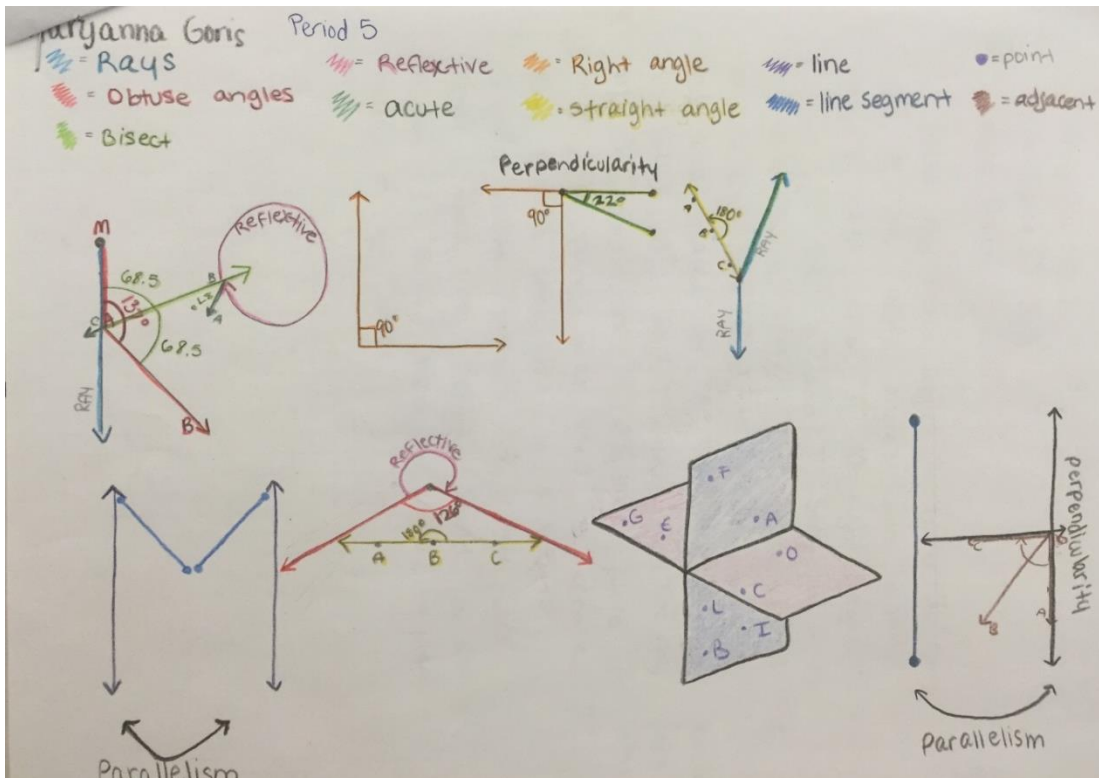 Goris Period 5
= Rays = Reflextive = Right angle = line = point
= Obtuse angles = acute = straight angle = line segment = adjacent
= Bisect
Perpendicularity
M
Reflextive
68.5
B
A
137°
68.5
RAY
B
90°
90°
22°
180°
C
RAY
RAY
Reflective
126°
180°
A B C
F
G E A
O
L C
I
B
perpendicularity
C
A
B
Parallelism
Parallelism